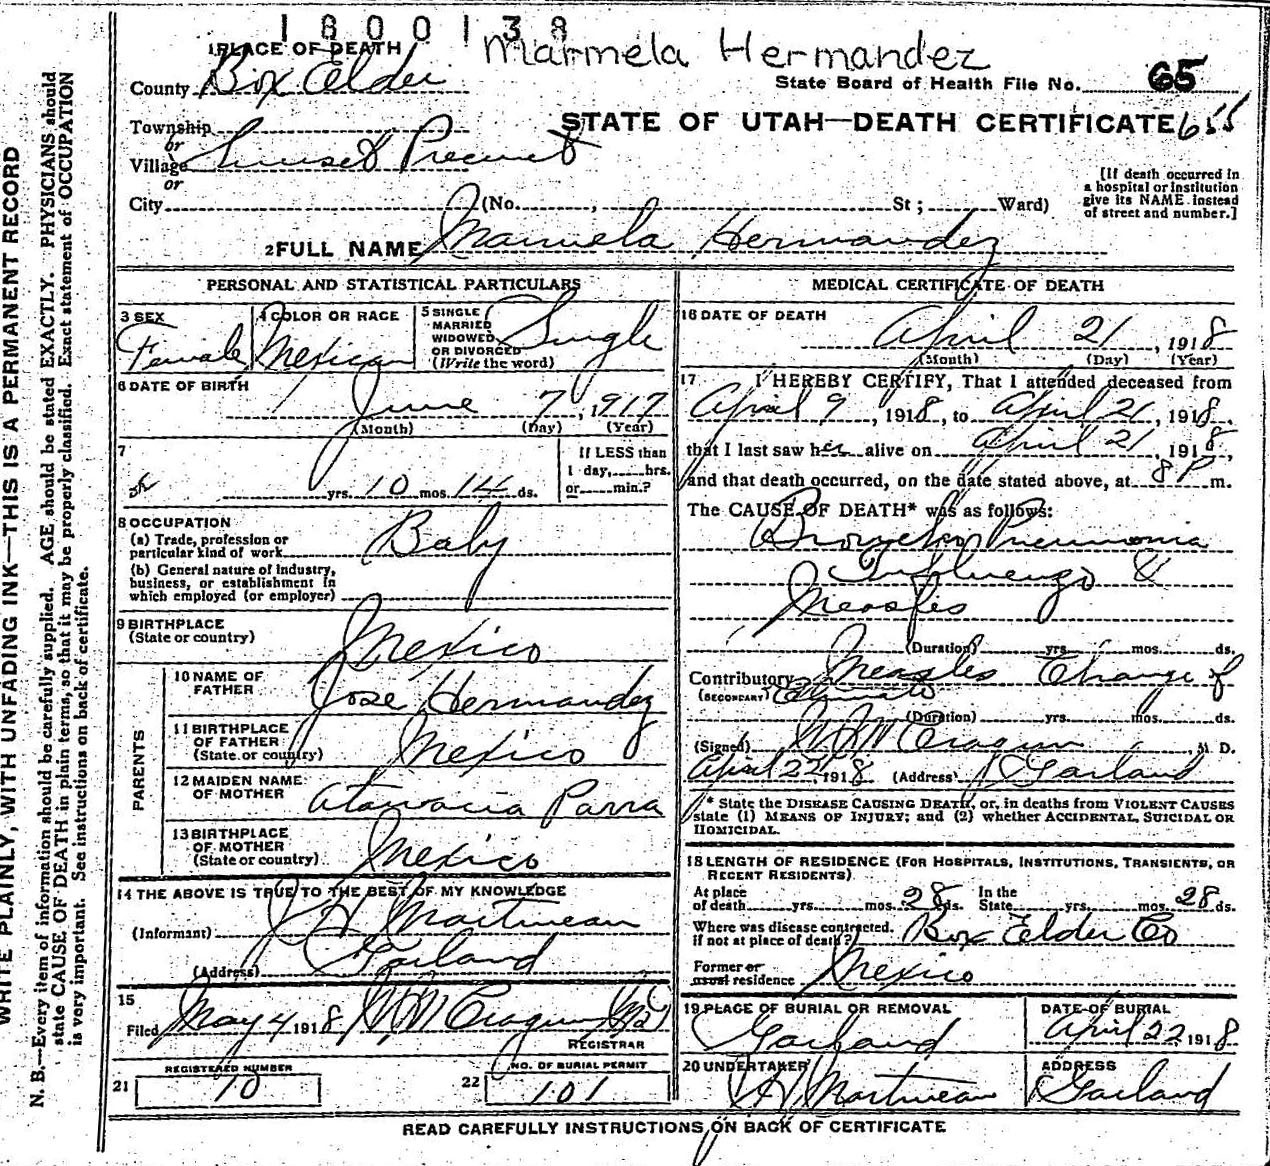 1800138
Marmela Hermandez
1 PLACE OF DEATH
State Board of Health File No. 65
County Box Elder
STATE OF UTAH—DEATH CERTIFICATE 655
Township
or
Village Sunset Precinct
or
City (No. , St ; Ward)
[If death occurred in
a hospital or institution
give its NAME instead
of street and number.]
2 FULL NAME Manuela Hernandez
PERSONAL AND STATISTICAL PARTICULARS
3 SEX Female
4 COLOR OR RACE Mexican
5 SINGLE
MARRIED
WIDOWED
OR DIVORCED
(Write the word) Single
6 DATE OF BIRTH
June 7, 1917
(Month) (Day) (Year)
7
yrs. 10 mos. 14 ds.
If LESS than
1 day, hrs.
or min.?
8 OCCUPATION
(a) Trade, profession or
particular kind of work Baby
(b) General nature of industry,
business, or establishment in
which employed (or employer)
9 BIRTHPLACE
(State or country) Mexico
PARENTS
10 NAME OF
FATHER Jose Hernandez
11 BIRTHPLACE
OF FATHER
(State or country) Mexico
12 MAIDEN NAME
OF MOTHER Atanacia Parra
13 BIRTHPLACE
OF MOTHER
(State or country) Mexico
14 THE ABOVE IS TRUE TO THE BEST OF MY KNOWLEDGE
(Informant) Martineau
(Address) Garland
15
Filed May 4 1918 Cragun
REGISTRAR
21 REGISTERED NUMBER
10
22 NO. OF BURIAL PERMIT
101
MEDICAL CERTIFICATE OF DEATH
16 DATE OF DEATH
April 21, 1918
(Month) (Day) (Year)
17 I HEREBY CERTIFY, That I attended deceased from
April 9, 1918, to April 21, 1918,
that I last saw her alive on April 21, 1918,
and that death occurred, on the date stated above, at 8 P m.
The CAUSE OF DEATH* was as follows:
Broncho Pneumonia
Influenza &
Measles
(Duration) yrs. mos. ds.
Contributory Measles Change of
(SECONDARY) Climate
(Duration) yrs. mos. ds.
(Signed) Cragun, M. D.
April 22, 1918 (Address) Garland
* State the DISEASE CAUSING DEATH, or, in deaths from VIOLENT CAUSES
state (1) MEANS OF INJURY; and (2) whether ACCIDENTAL, SUICIDAL OR
HOMICIDAL.
18 LENGTH OF RESIDENCE (FOR HOSPITALS, INSTITUTIONS, TRANSIENTS, OR
RECENT RESIDENTS)
At place
of death yrs. mos. 28 ds. In the
State yrs. mos. 28 ds.
Where was disease contracted,
if not at place of death? Box Elder Co
Former or
usual residence Mexico
19 PLACE OF BURIAL OR REMOVAL
Garland
DATE OF BURIAL
April 22 1918
20 UNDERTAKER
Martineau
ADDRESS
Garland
READ CAREFULLY INSTRUCTIONS ON BACK OF CERTIFICATE
WRITE PLAINLY, WITH UNFADING INK—THIS IS A PERMANENT RECORD
N. B.—Every item of information should be carefully supplied. AGE should be stated EXACTLY. PHYSICIANS should
state CAUSE OF DEATH in plain terms, so that it may be properly classified. Exact statement of OCCUPATION
is very important. See instructions on back of certificate.